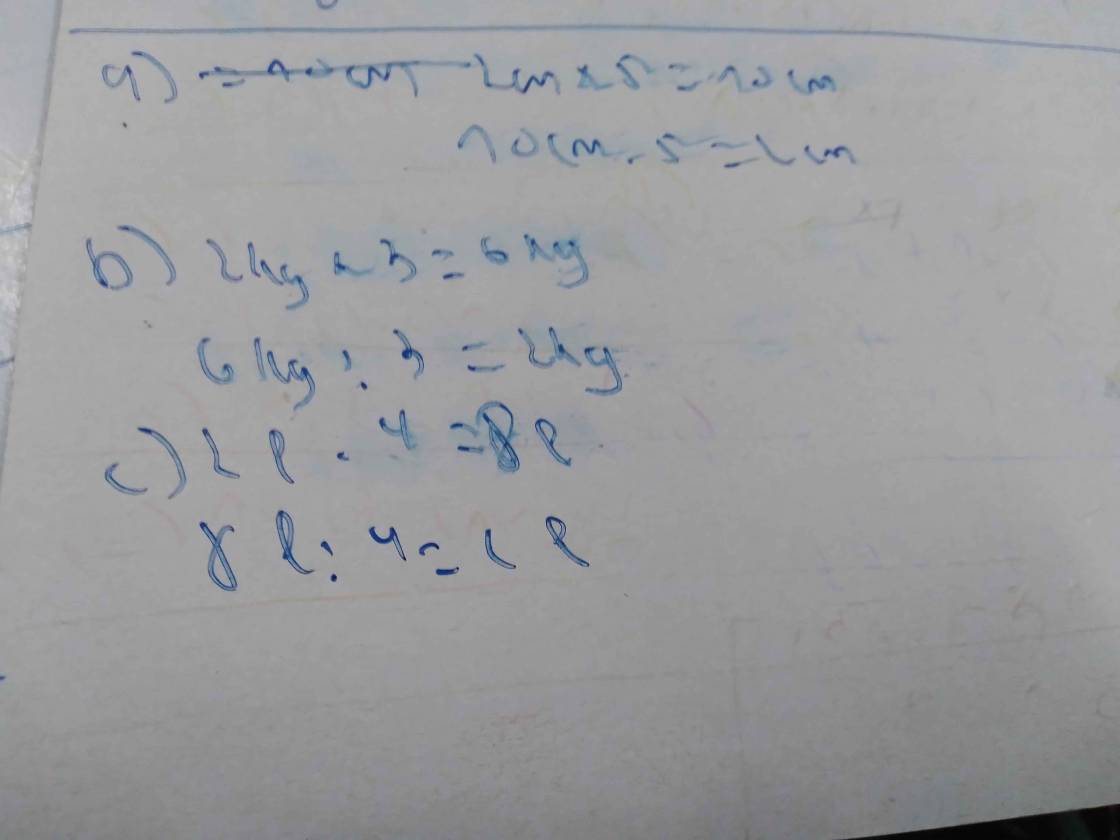 a) = 10cm 2cm x 5 = 10cm
10cm : 5 = 2cm
b) 2kg x 3 = 6kg
6kg : 3 = 2kg
c) 2 l . 4 = 8 l
8 l : 4 = 2 l